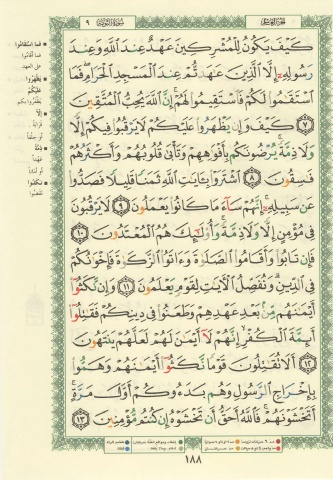 الجزء العاشر
سورة التوبة ٩
كَيْفَ يَكُونُ لِلْمُشْرِكِينَ عَهْدٌ عِندَ ٱللَّهِ وَعِندَ
رَسُولِهِۦٓ إِلَّا ٱلَّذِينَ عَٰهَدتُّمْ عِندَ ٱلْمَسْجِدِ ٱلْحَرَامِ ۖ فَمَا
ٱسْتَقَٰمُوا۟ لَكُمْ فَٱسْتَقِيمُوا۟ لَهُمْ ۚ إِنَّ ٱللَّهَ يُحِبُّ ٱلْمُتَّقِينَ
٧ كَيْفَ وَإِن يَظْهَرُوا۟ عَلَيْكُمْ لَا يَرْقُبُوا۟ فِيكُمْ إِلًّا
وَلَا ذِمَّةً ۚ يُرْضُونَكُم بِأَفْوَٰهِهِمْ وَتَأْبَىٰ قُلُوبُهُمْ وَأَكْثَرُهُمْ
فَٰسِقُونَ ٨ ٱشْتَرَوْا۟ بِـَٔايَٰتِ ٱللَّهِ ثَمَنًا قَلِيلًا فَصَدُّوا۟
عَن سَبِيلِهِۦٓ ۚ إِنَّهُمْ سَآءَ مَا كَانُوا۟ يَعْمَلُونَ ٩ لَا يَرْقُبُونَ
فِى مُؤْمِنٍ إِلًّا وَلَا ذِمَّةً ۚ وَأُو۟لَٰٓئِكَ هُمُ ٱلْمُعْتَدُونَ ١٠
فَإِن تَابُوا۟ وَأَقَامُوا۟ ٱلصَّلَوٰةَ وَءَاتَوُا۟ ٱلزَّكَوٰةَ فَإِخْوَٰنُكُمْ
فِى ٱلدِّينِ ۗ وَنُفَصِّلُ ٱلْءَايَٰتِ لِقَوْمٍ يَعْلَمُونَ ١١ وَإِن نَّكَثُوٓا۟
أَيْمَٰنَهُم مِّنۢ بَعْدِ عَهْدِهِمْ وَطَعَنُوا۟ فِى دِينِكُمْ فَقَٰتِلُوٓا۟
أَئِمَّةَ ٱلْكُفْرِ ۙ إِنَّهُمْ لَآ أَيْمَٰنَ لَهُمْ لَعَلَّهُمْ يَنتَهُونَ
١٢ أَلَا تُقَٰتِلُونَ قَوْمًا نَّكَثُوٓا۟ أَيْمَٰنَهُمْ وَهَمُّوا۟
بِإِخْرَاجِ ٱلرَّسُولِ وَهُم بَدَءُوكُمْ أَوَّلَ مَرَّةٍ ۚ
أَتَخْشَوْنَهُمْ ۚ فَٱللَّهُ أَحَقُّ أَن تَخْشَوْهُ إِن كُنتُم مُّؤْمِنِينَ ١٣
فما استقاموا
على العهد
يظهروا
عليكم
يظفروا بكم
إلّا
ذمّة
نكثوا
نقضوا
١٨٨